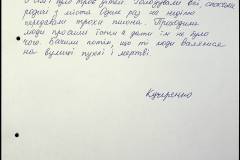 було троє дітей. Голодували всі
родичі з міста один раз на неділю
передавали трохи пшона. Приходили
люди просили їсти а дати їм не було
чого. Бачили потім, що ті люди валялися
на вулиці пухлі і мертві.
Кучеренко